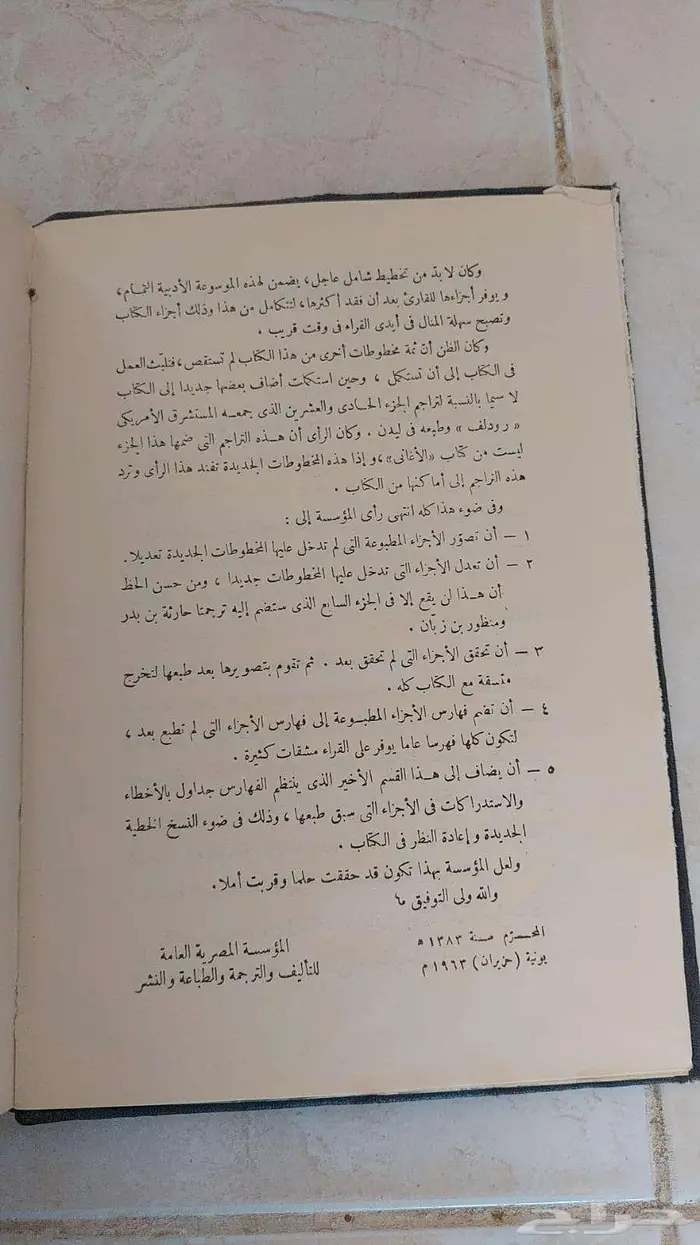 وكان لا بدّ من تخطيط شامل عاجل، يضمن لهذه الموسوعة الأدبية التمام،
ويوفر أجزاءها للقارئ بعد أن فقد أكثرها، لتتكامل من هذا وذلك أجزاء الكتاب
وتصبح سهلة المنال فى أيدى القراء فى وقت قريب .
وكان الظن أنّ ثمة مخطوطات أخرى من هذا الكتاب لم تستقص، فتلبّث العمل
فى الكتاب إلى أن تستكمل ، وحين استكملت أضاف بعضها جديدا إلى الكتاب
لا سيما بالنسبة لتراجم الجزء الحادى والعشرين الذى جمعه المستشرق الأمريكى
« رودلف » وطبعه فى ليدن . وكان الرأى أن هذه التراجم التى ضمها هذا الجزء
ليست من كتاب «الأغانى»، وإذا هذه المخطوطات الجديدة تفند هذا الرأى وترد
هذه التراجم إلى أماكنها من الكتاب .
وفى ضوء هذا كله انتهى رأى المؤسسة إلى :
١ – أن تصوّر الأجزاء المطبوعة التى لم تدخل عليها المخطوطات الجديدة تعديلا.
٢ – أن تعدل الأجزاء التى تدخل عليها المخطوطات جديدا ، ومن حسن الحظ
أن هذا لن يقع إلا فى الجزء السابع الذى ستضم إليه ترجمتا حارثة بن بدر
ومنظور بن زبّان .
٣ – أن تحقق الأجزاء التى لم تحقق بعد . ثم تقوم بتصويرها بعد طبعها لتخرج
متسقة مع الكتاب كله .
٤ – أن تضم فهارس الأجزاء المطبوعة إلى فهارس الأجزاء التى لم تطبع بعد ،
لتكون كلها فهرسا عاما يوفر على القراء مشقات كثيرة .
٥ – أن يضاف إلى هذا القسم الأخير الذى ينتظم الفهارس جداول بالأخطاء
والاستدراكات فى الأجزاء التى سبق طبعها ، وذلك فى ضوء النسخ الخطية
الجديدة وإعادة النظر فى الكتاب .
ولعل المؤسسة بهذا تكون قد حققت حلما وقربت أملا.
والله ولى التوفيق ما
المحرّم سنة ١٣٨٣ ه
يونية (حزيران) ١٩٦٣ م
المؤسسة المصرية العامة
للتأليف والترجمة والطباعة والنشر
حراج